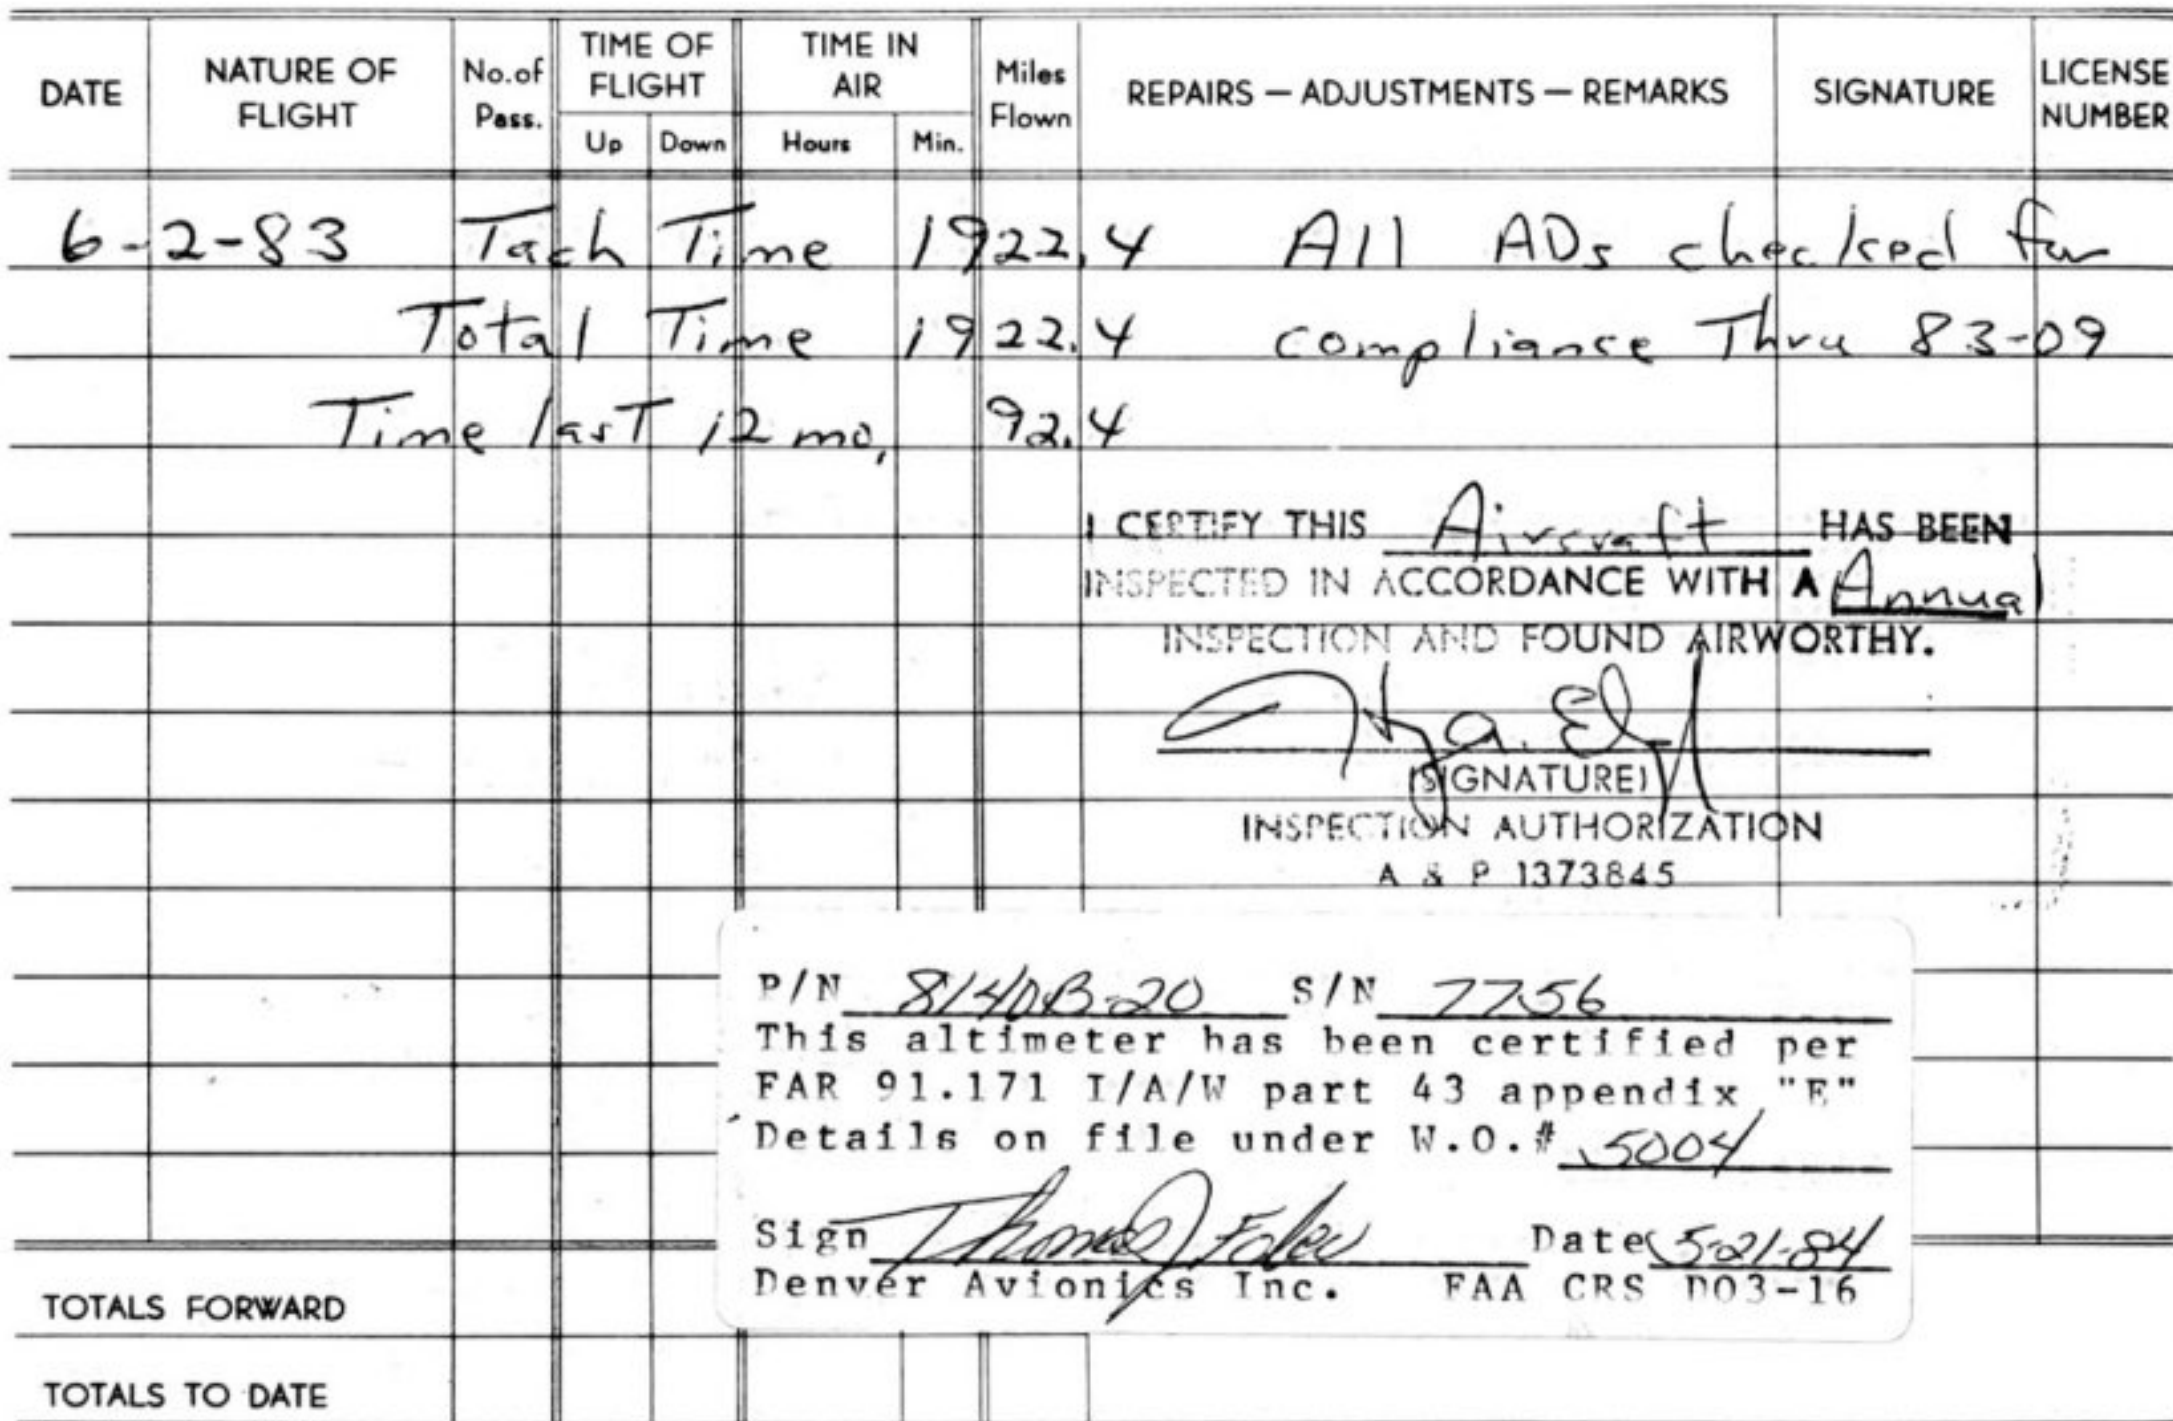 DATE NATURE OF FLIGHT No.of Pass. TIME OF FLIGHT Up Down TIME IN AIR Hours Min. Miles Flown REPAIRS — ADJUSTMENTS — REMARKS SIGNATURE LICENSE NUMBER
6-2-83 Tach Time 1922.4 All ADs checked for
Total Time 1922.4 compliance Thru 83-09
Time last 12 mo, 92.4
I CERTIFY THIS Aircraft HAS BEEN
INSPECTED IN ACCORDANCE WITH A Annual
INSPECTION AND FOUND AIRWORTHY.
(SIGNATURE)
INSPECTION AUTHORIZATION
A & P 1373845
P/N 8140B-20 S/N 7756
This altimeter has been certified per
FAR 91.171 I/A/W part 43 appendix "E"
Details on file under W.O.# 5004
Sign Thomas J Foley Date 5-21-84
Denver Avionics Inc. FAA CRS D03-16
TOTALS FORWARD
TOTALS TO DATE